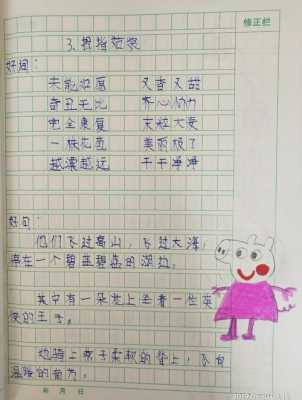 修正栏
3、拇指姑娘
好词:
未能如愿 又香又甜
奇丑无比 齐心协力
完全康复 末粒大麦
一株花苗 美丽极了
越漂越远 干干净净
好句:
他们飞过高山,飞过大海,
停在一个碧蓝碧蓝的湖边。
其中有一朵花上坐着一位英
俊的王子。
她骑上燕子柔软的背上,飞向
温暖的南方。
年 月 日